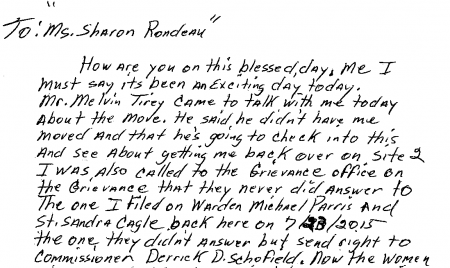 "
To: Ms. Sharon Rondeau"
How are you on this blessed, day, me I
must say it's been an Exciting day today.
Mr. Melvin Tirey came to talk with me today
about the move. He said he didn't have me
moved and that he's going to check into this
and see about getting me back over on site 2
I was also called to the Grievance office on
the Grievance that they never did answer to
The one I filed on Warden Michael Parris and
St. Sandra Cagle back here on 7/23/2015
the one, they didn't answer but send right to
Commissioner Derrick D. Schofield. Now the women